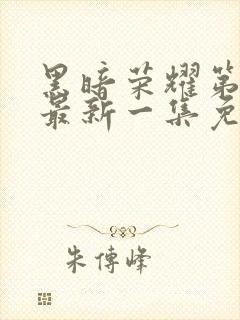 黑暗荣耀第
最新一集免
朱傳峰